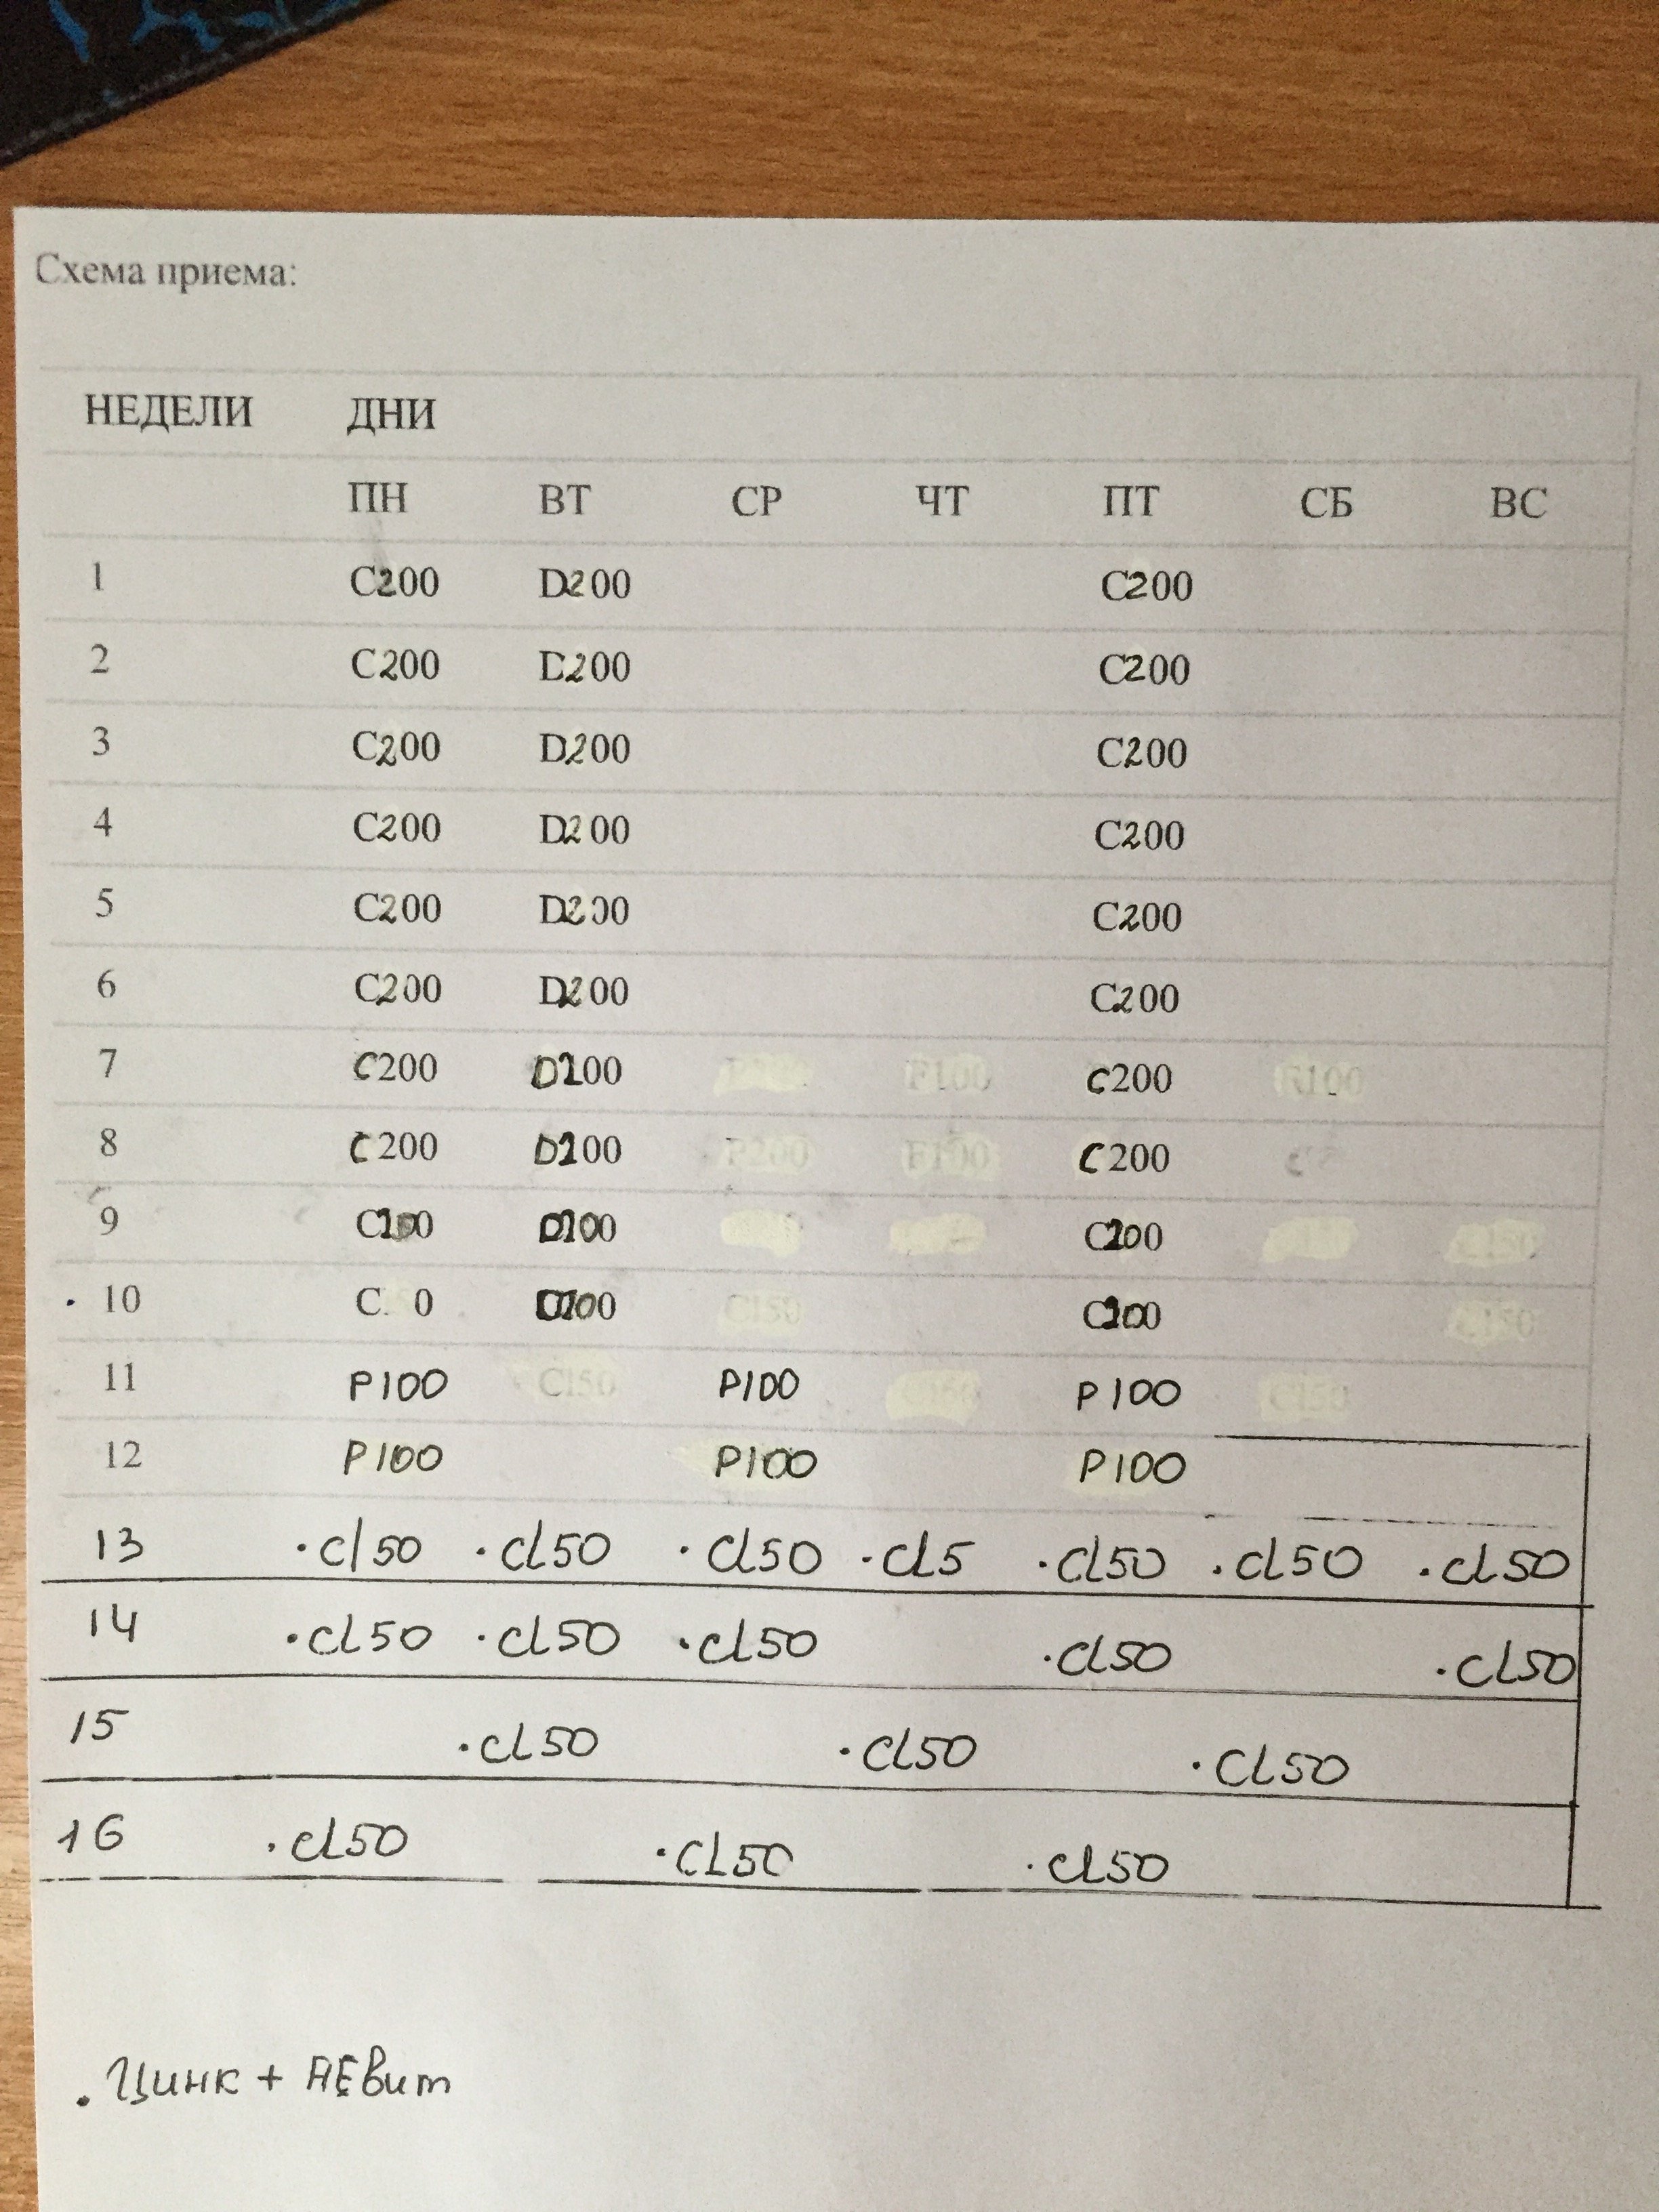 Схема приема:
НЕДЕЛИ ДНИ
ПН ВТ СР ЧТ ПТ СБ ВС
1 C200 D200 C200
2 C200 D200 C200
3 C200 D200 C200
4 C200 D200 C200
5 C200 D200 C200
6 C200 D200 C200
7 C200 D200 F100 C200
8 C200 D200 P200 F100 C200
9 C200 D200 C200 Cl50
10 C 0 D200 Cl50 C200 Cl50
11 P100 Cl50 P100 P100 Cl50
12 P100 P100 P100
13 ·Cl50 ·CL50 ·CL50 ·CL5 ·CL50 ·CL50 ·CL50
14 ·CL50 ·CL50 ·CL50 ·CL50 ·CL50
15 ·CL50 ·CL50 ·CL50
16 ·CL50 ·CL50 ·CL50
. Цинк + АЕвит